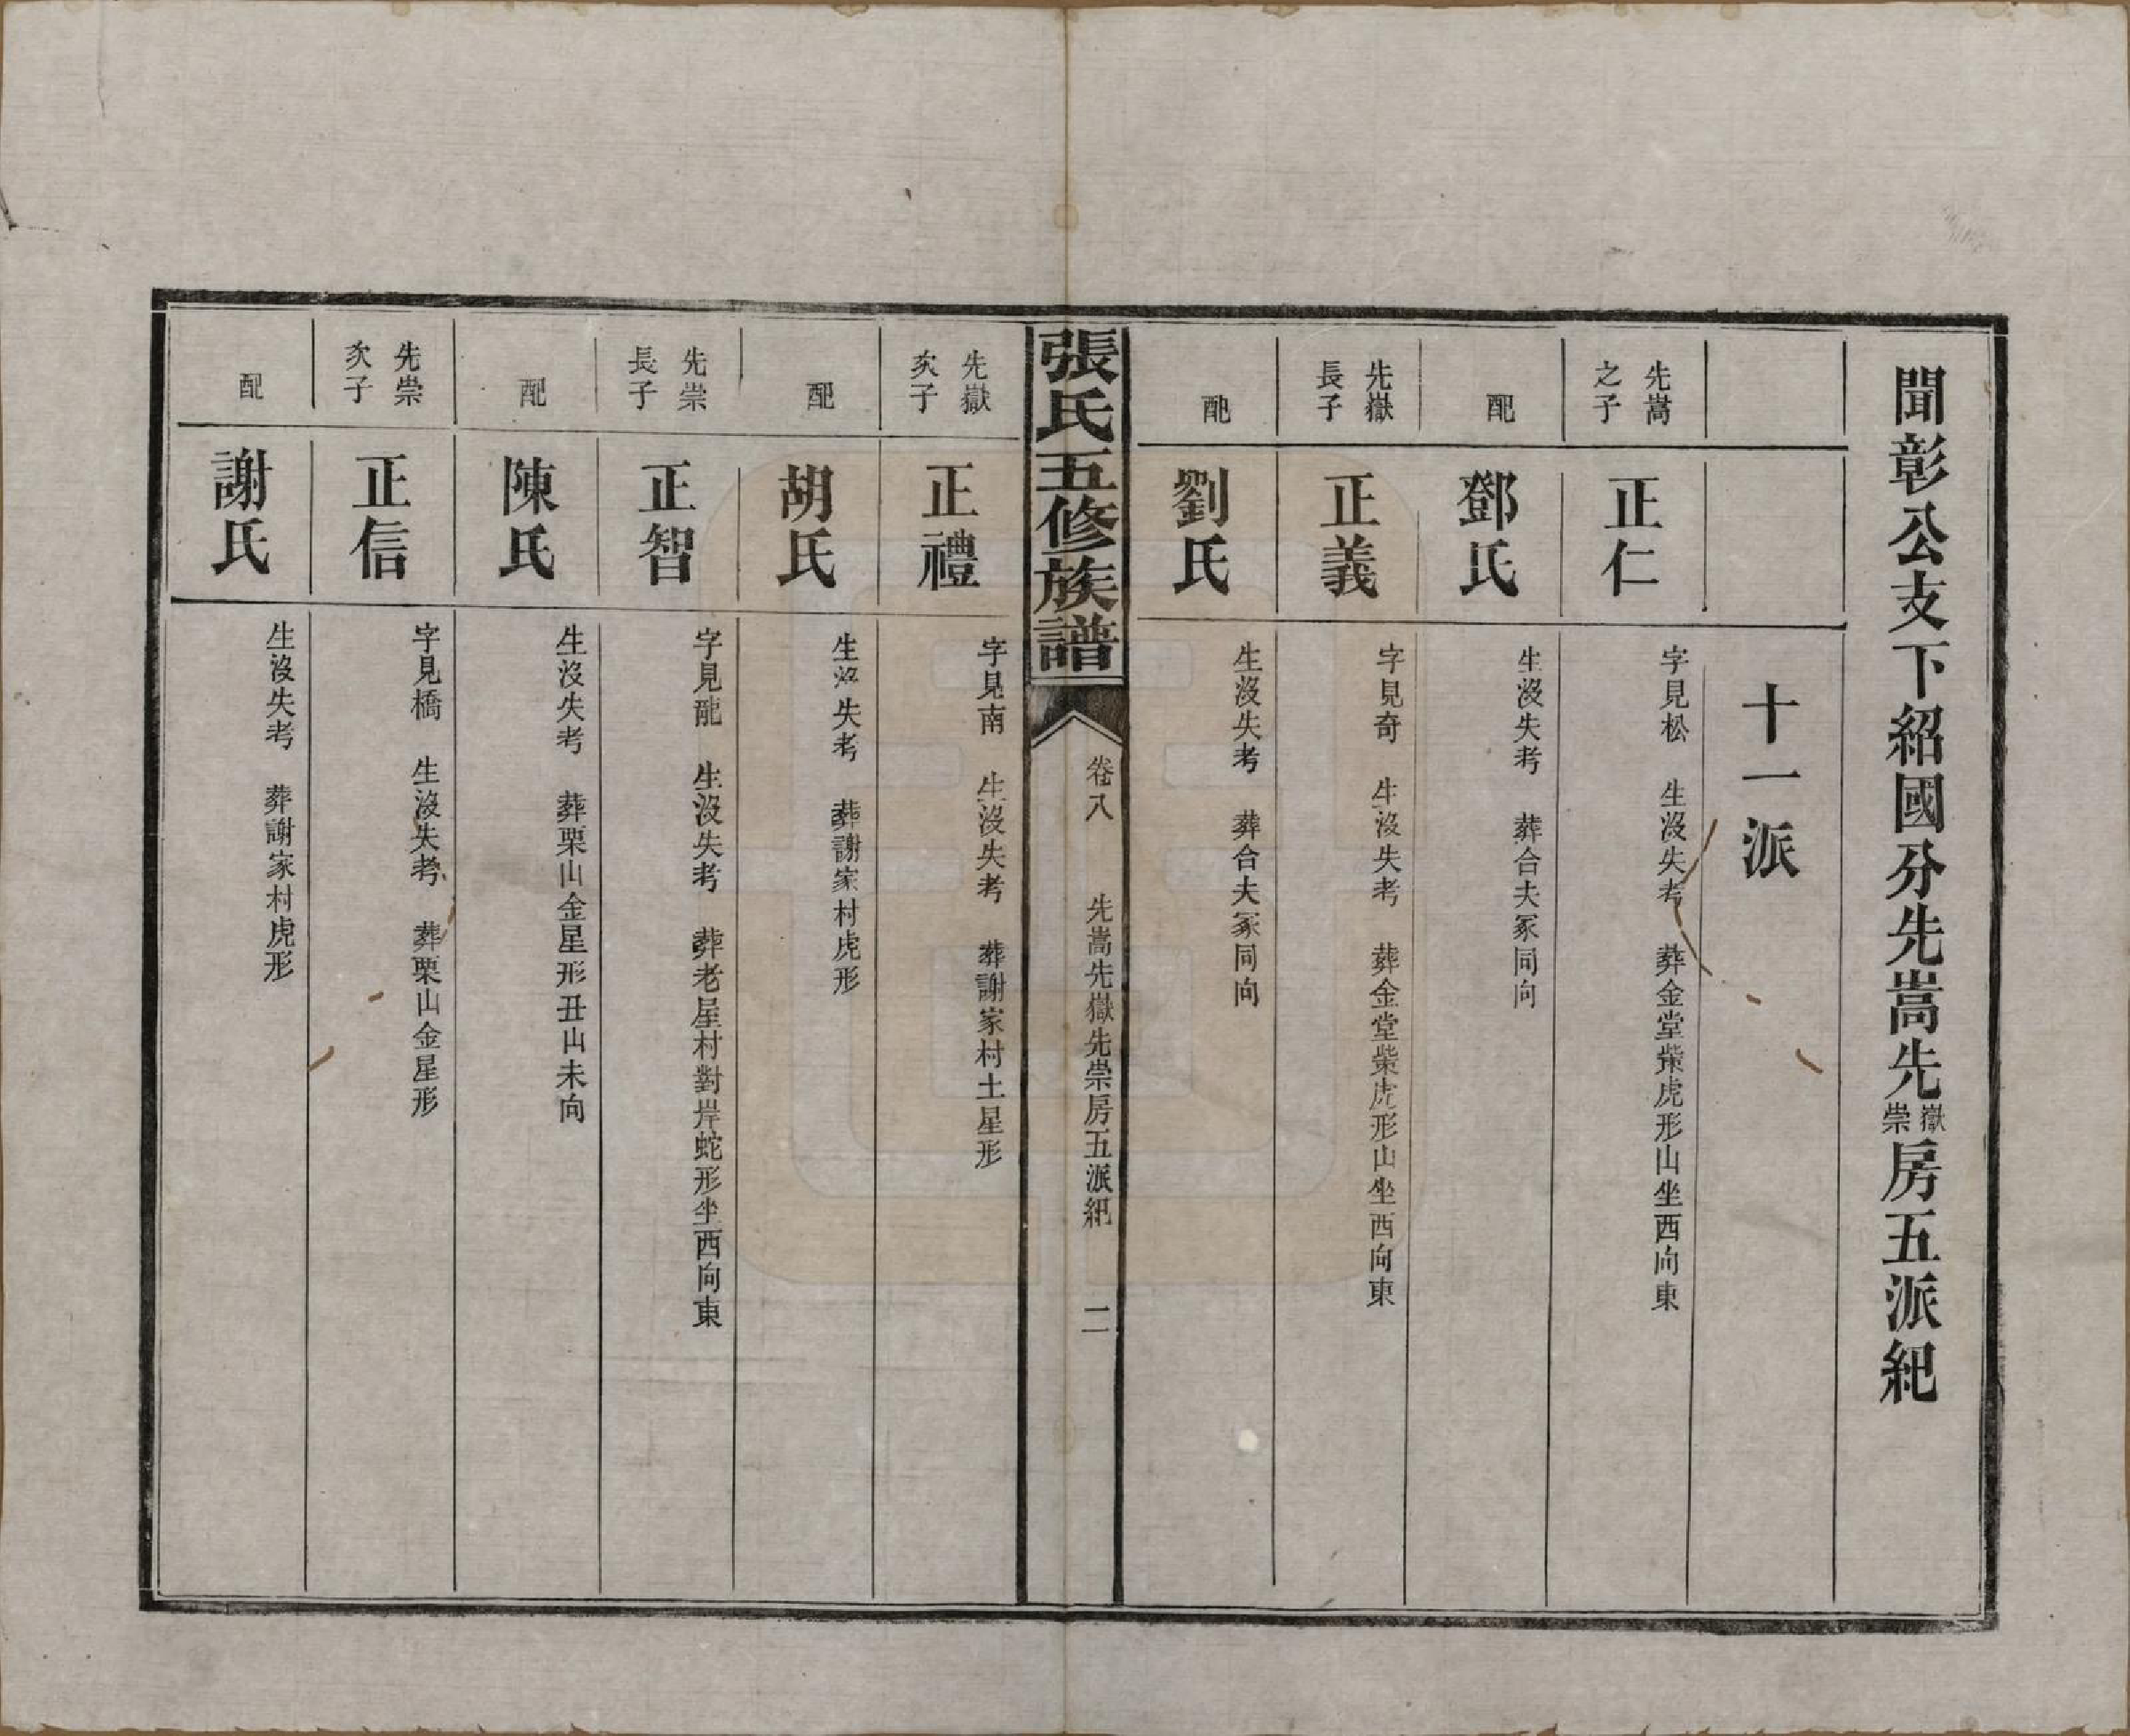 聞彰公支下紹國分先嵩先嶽崇房五派紀
十一派
先嵩之子
正仁
字見松 生沒失考 葬金堂柴虎形山坐西向東
配
鄧氏
生沒失考 葬合夫冢同向
先嶽長子
正義
字見奇 生沒失考 葬金堂柴虎形山坐西向東
配
劉氏
生沒失考 葬合夫冢同向
張氏五修族譜
卷八
先嵩先嶽先崇房五派紀
二
先嶽次子
正禮
字見南 生沒失考 葬謝家村土星形
配
胡氏
生沒失考 葬謝家村虎形
先崇長子
正智
字見龍 生沒失考 葬老屋村對岸蛇形坐西向東
配
陳氏
生沒失考 葬栗山金星形丑山未向
先崇次子
正信
字見橋 生沒失考 葬栗山金星形
配
謝氏
生沒失考 葬謝家村虎形